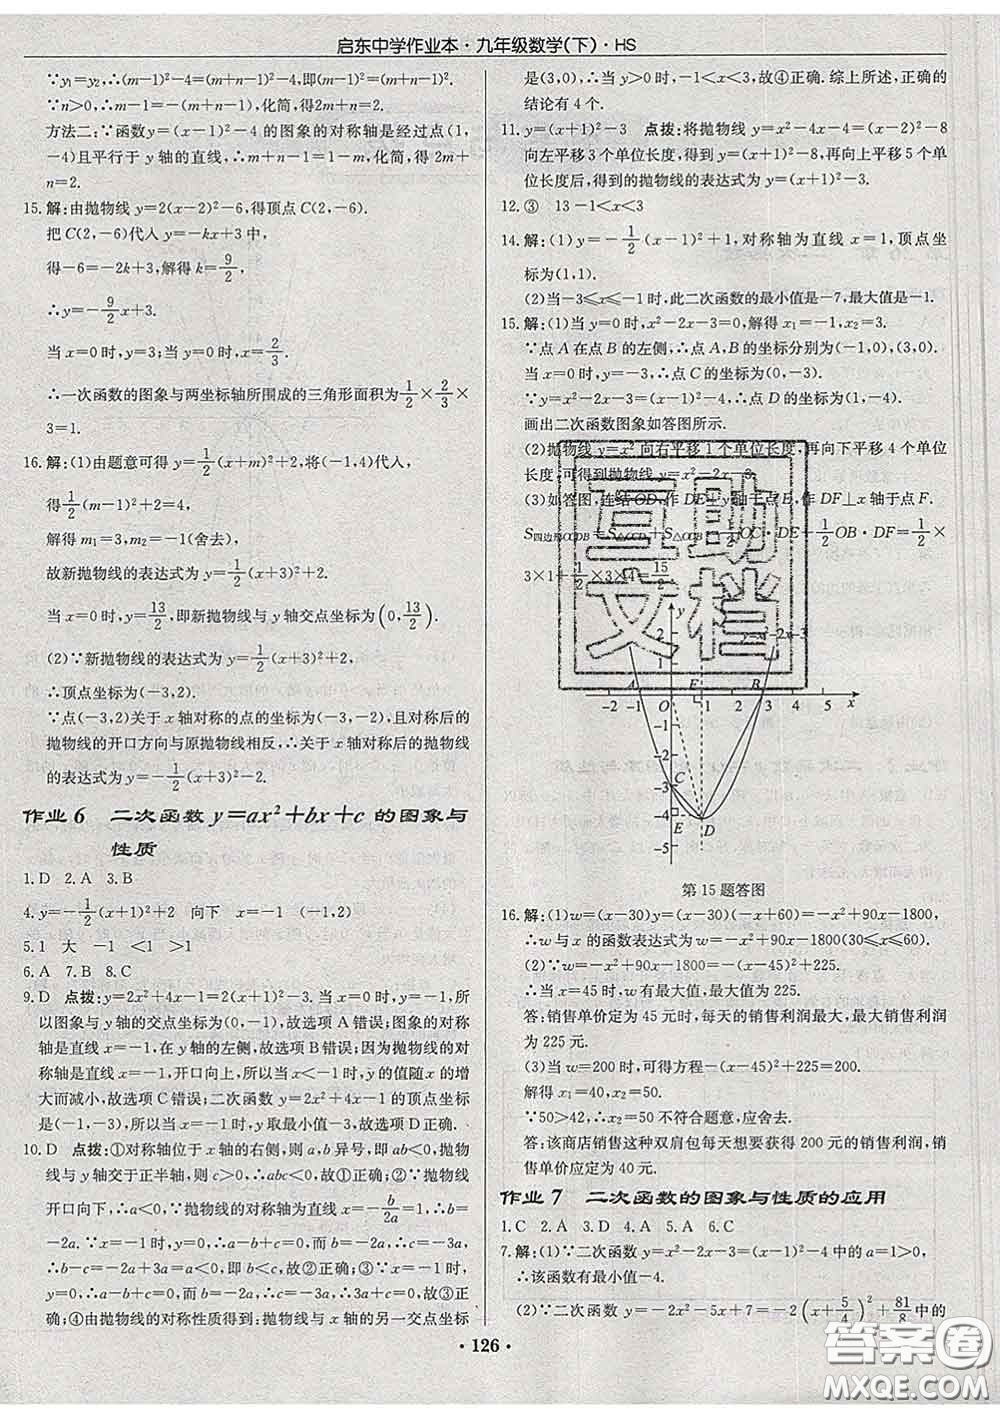 启东中学作业本·九年级数学(下)·HS
∵y₁=y₂,∴(m-1)²-4=(m+n-1)²-4,即(m-1)²=(m+n-1)².
∵n>0,∴m-1=-(m+n-1),化简,得2m+n=2.
方法二:∵函数y=(x-1)²-4的图象的对称轴是经过点(1,
-4)且平行于y轴的直线,∴m+n-1=1-m,化简,得2m+
n=2.
15.解:由抛物线y=2(x-2)²-6,得顶点C(2,-6).
把C(2,-6)代入y=-kx+3中,
得-6=-2k+3,解得k=9/2,
∴y=-9/2x+3.
当x=0时,y=3;当y=0时,x=2/3.
∴一次函数的图象与两坐标轴所围成的三角形面积为1/2×2/3
×3=1.
16.解:(1)由题意可得y=1/2(x+m)²+2,将(-1,4)代入,
得1/2(m-1)²+2=4,
解得m₁=3,m₂=-1(舍去),
故新抛物线的表达式为y=1/2(x+3)²+2.
当x=0时,y=13/2,即新抛物线与y轴交点坐标为(0,13/2).
(2)∵新抛物线的表达式为y=1/2(x+3)²+2,
∴顶点坐标为(-3,2).
∵点(-3,2)关于x轴对称的点的坐标为(-3,-2),且对称后的
抛物线的开口方向与原抛物线相反,∴关于x轴对称后的抛物线
的表达式为y=-1/2(x+3)²-2.
作业6 二次函数y=ax²+bx+c的图象与
性质
1.D 2.A 3.B
4.y=-1/2(x+1)²+2 向下 x=-1 (-1,2)
5.1 大 -1 <1 >1
6.A 7.B 8.C
9.D 点拨:y=2x²+4x-1=2(x+1)²-3.当x=0时,y=-1,所
以图象与y轴的交点坐标为(0,-1),故选项A错误;图象的对称
轴是直线x=-1,在y轴的左侧,故选项B错误;因为抛物线的对
称轴是直线x=-1,所以当x<-1时,y的值随x的增
大而减小,故选项C错误;二次函数y=2x²+4x-1的顶点坐标
是(-1,-3),所以当x=-1时,y取最小值-3,故选项D正确.
10.D 点拨:①对称轴位于x轴的右侧,则a,b异号,即ab<0,抛物
线与y轴交于正半轴,则c>0,∴abc<0,故①正确;②∵抛物线
开口向下,∴a<0.∵抛物线的对称轴为直线x=-b/2a=1,∴b=
-2a.∵x=-1时,y=0,∴a-b+c=0,而b=-2a,∴c=-3a,
∴b-c=-2a+3a=a<0,即b<c,故②正确;③∵x=-1时,
y=0,∴a-b+c=0,而b=-2a,∴c=-3a,∴3a+c=0,故③正
确;④由抛物线的对称性质得到:抛物线与x轴的另一交点坐标
是(3,0),∴当y>0时,-1<x<3,故④正确.综上所述,正确的
结论有4个.
11.y=(x+1)²-3 点拨:将抛物线y=x²-4x-4=(x-2)²-8
向左平移3个单位长度,得到y=(x+1)²-8,再向上平移5个单
位长度后,得到的抛物线的表达式为y=(x+1)²-3.
12.③ 13 -1<x<3
14.解:(1)y=-1/2(x-1)²+1,对称轴为直线x=1,顶点坐
标为(1,1).
(2)当-3≤x≤-1时,此二次函数的最小值是-7,最大值是-1.
15.解:(1)当y=0时,x²-2x-3=0,解得x₁=-1,x₂=3.
∵点A在点B的左侧,∴点A,B的坐标分别为(-1,0),(3,0).
当x=0时,y=-3,∴点C的坐标为(0,-3).
∵y=x²-2x-3=(x-1)²-4,∴点D的坐标为(1,-4).
画出二次函数图象如答图所示.
(2)抛物线y=x²向右平移1个单位长度,再向下平移4个单位
长度,可得到抛物线y=x²-2x-3.
(3)如答图,连结OD,作DE⊥y轴于点E,作DF⊥x轴于点F.
S四边形OCDB=S△OCD+S△ODB=1/2OC·DE+1/2OB·DF=1/2×
3×1+1/2×3×4=15/2.
互助
文档
y
2
1
y=x²-2x-3
A
F
B
-2 -1 O 1 2 3 4 5 x
-1
-2
-3 C
-4 E D
-5
第15题答图
16.解:(1)w=(x-30)y=(x-30)(-x+60)=-x²+90x-1800,
∴w与x的函数表达式为w=-x²+90x-1800(30≤x≤60).
(2)∵w=-x²+90x-1800=-(x-45)²+225.
∴当x=45时,w有最大值,最大值为225.
答:销售单价定为45元时,每天的销售利润最大,最大利润
为225元.
(3)当w=200时,可得方程-(x-45)²+225=200.
解得x₁=40,x₂=50.
∵50>42,∴x=50不符合题意,应舍去.
答:该商店销售这种双肩包每天想要获得200元的销售利润,销
售单价应定为40元.
作业7 二次函数的图象与性质的应用
1.C 2.A 3.D 4.A 5.A 6.C
7.解:(1)∵二次函数y=x²-2x-3=(x-1)²-4中的a=1>0,
∴该函数有最小值-4.
(2)∵二次函数y=-2x²-5x+7=-2(x+5/4)²+81/8中的
·126·
答案圈
MXQE.COM